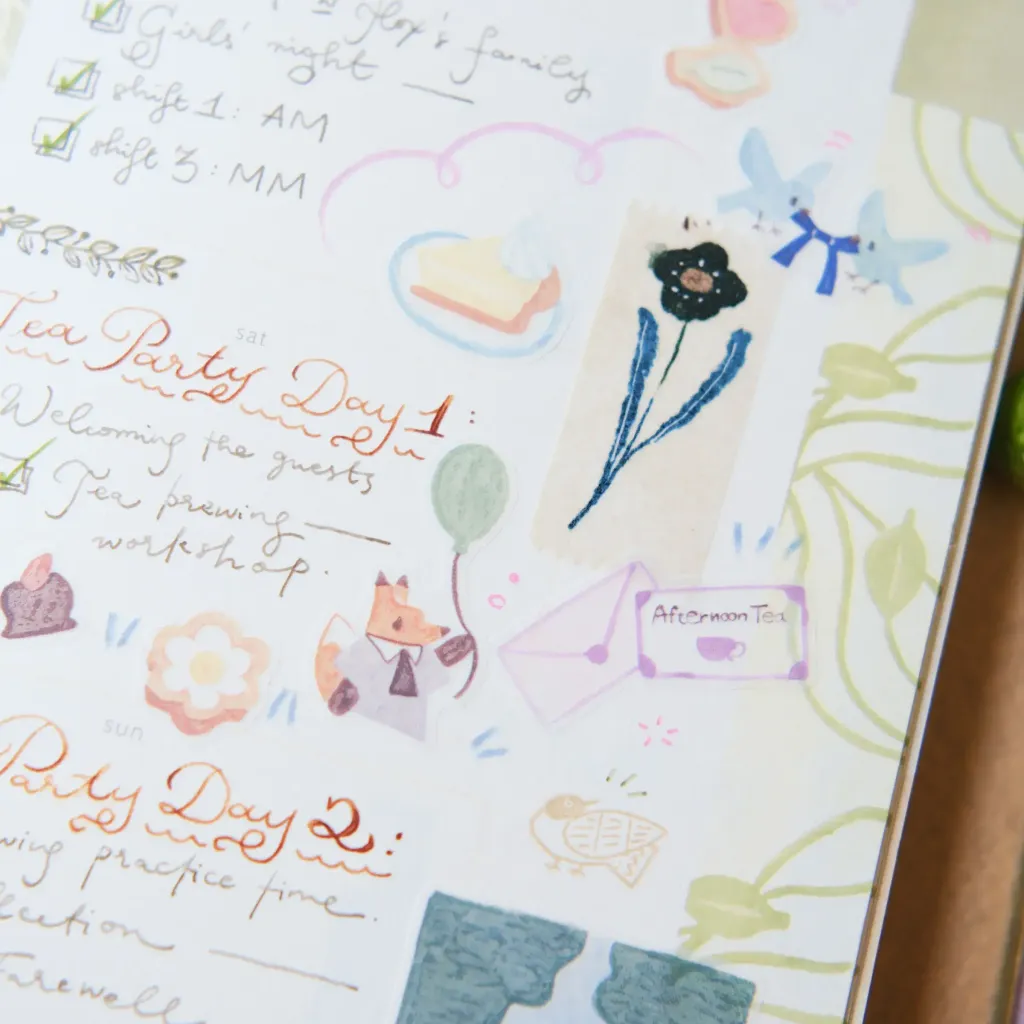 Girls' night
family
shift 1: AM
shift 3: MM
sat
Tea Party Day 1:
Welcoming the guests
Tea brewing
workshop.
Afternoon Tea
sun
Party Day 2:
practice time.
Farewell